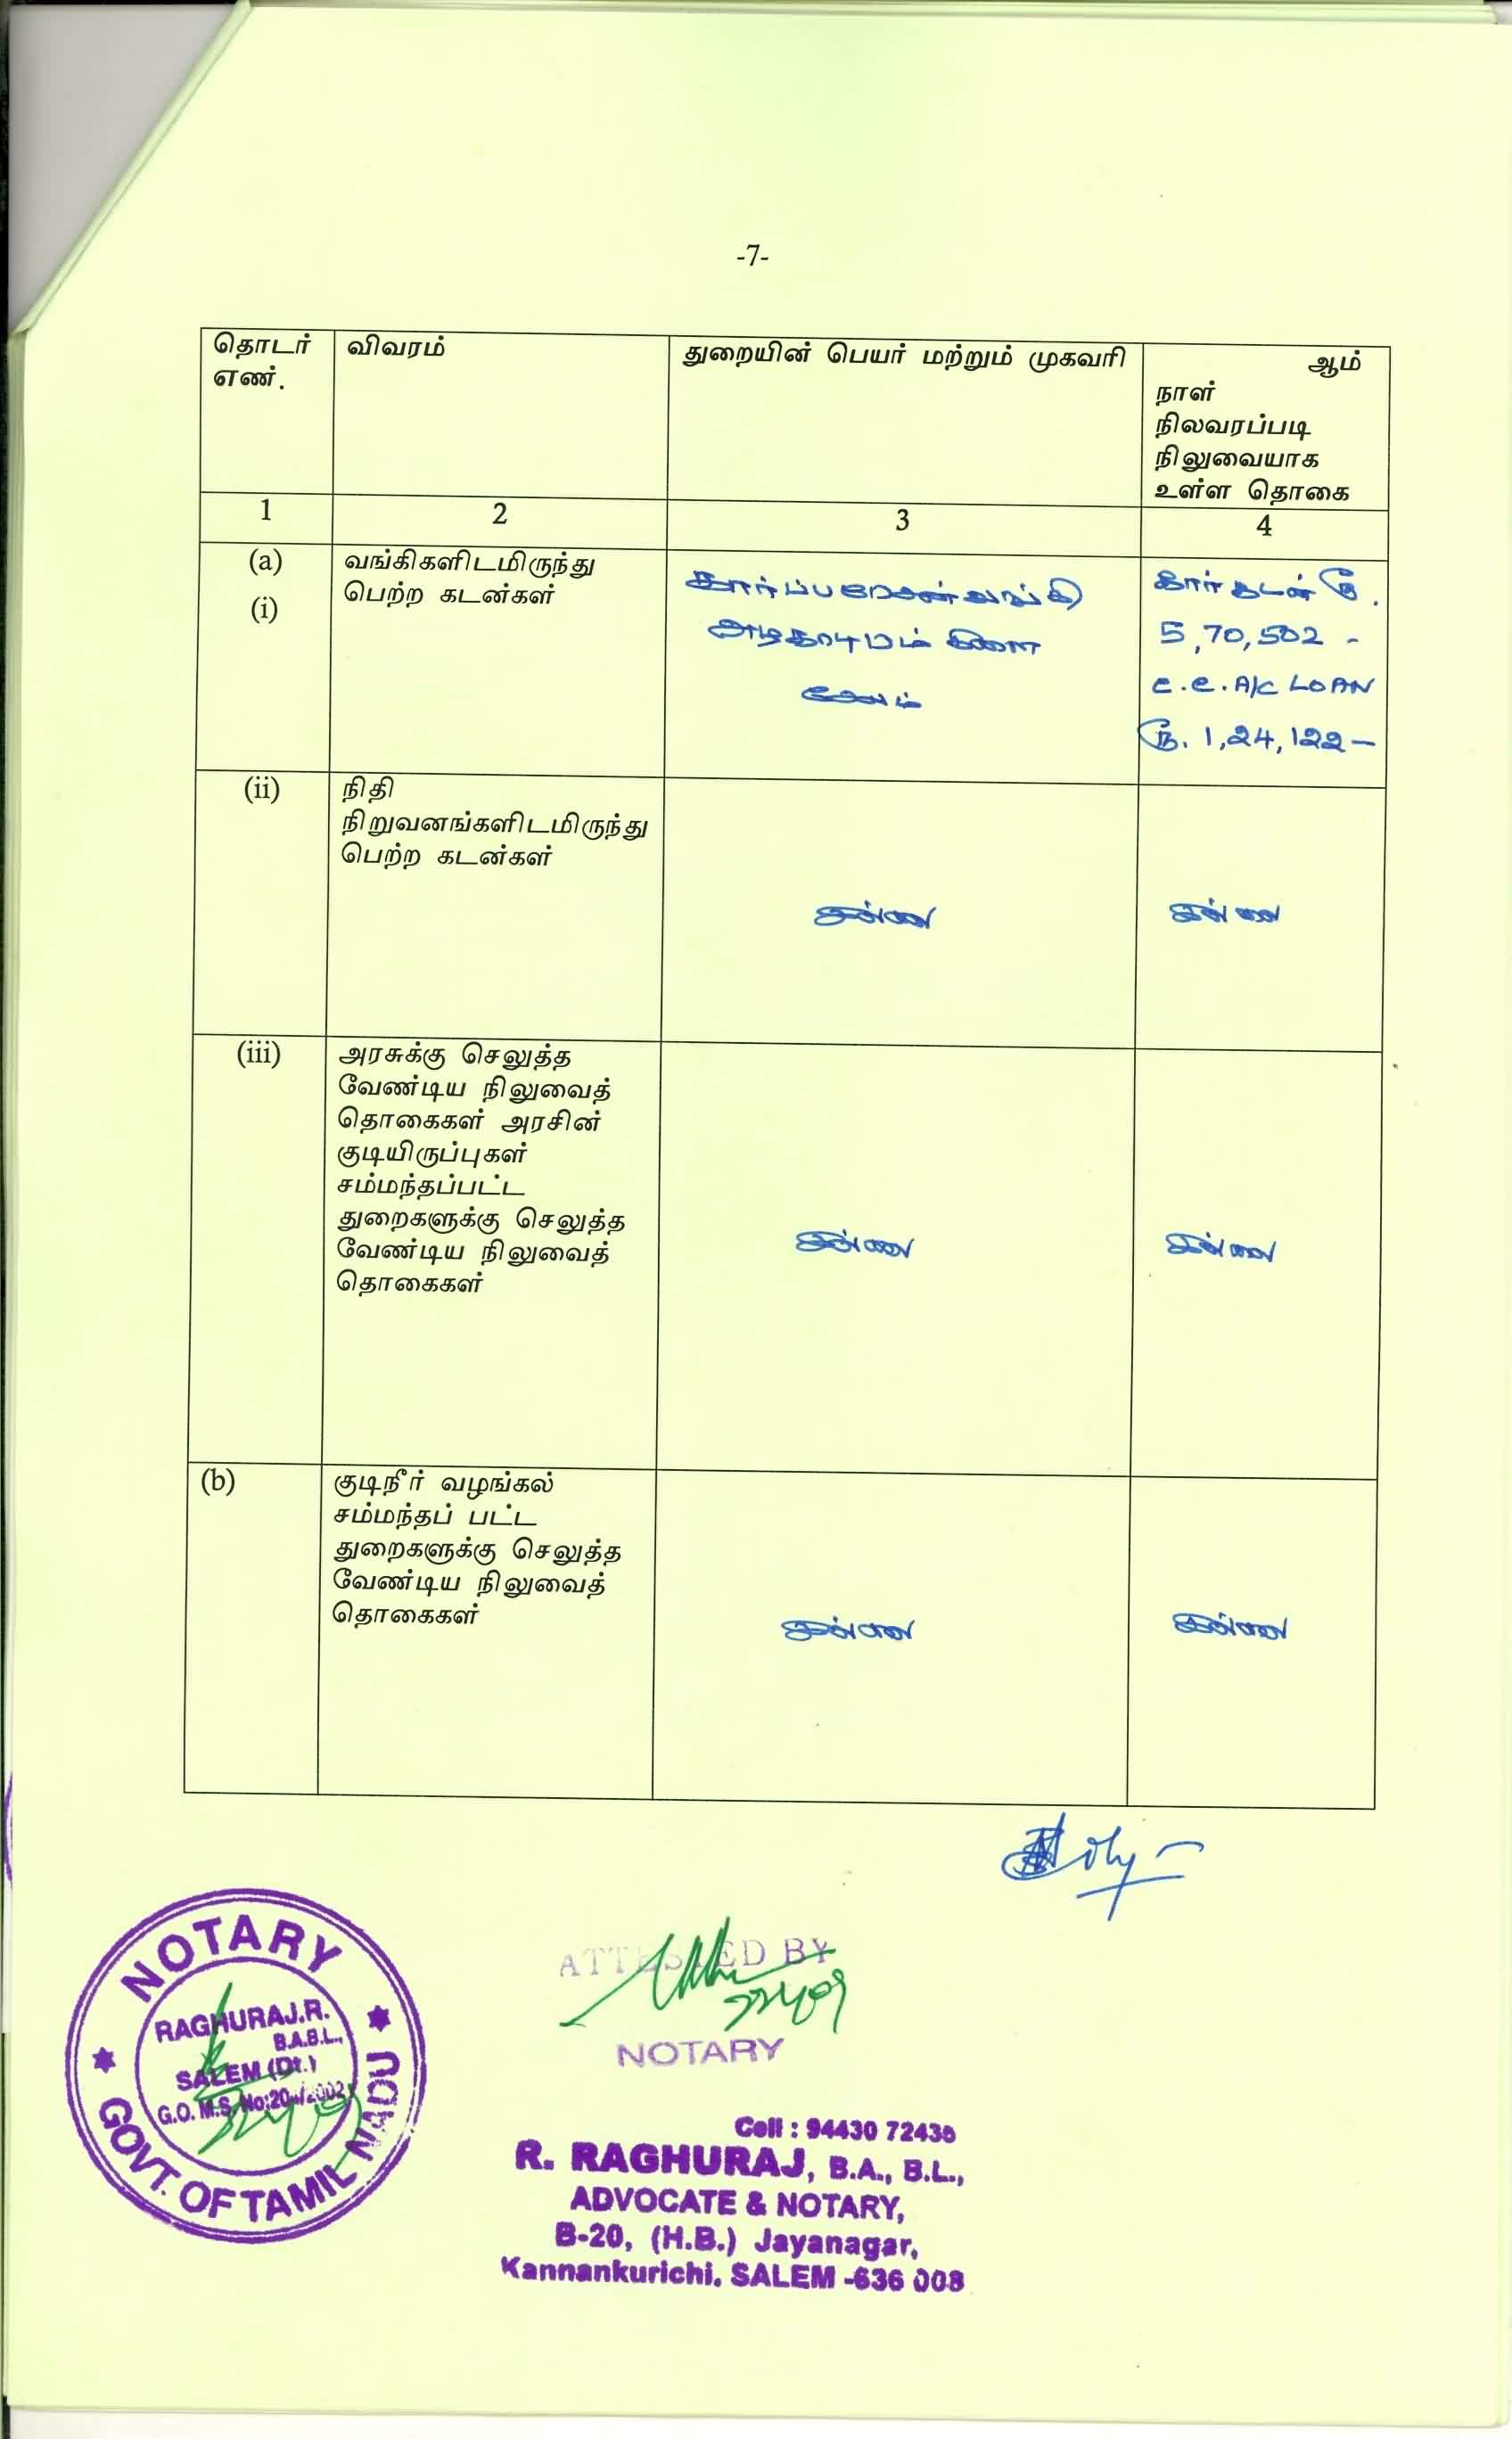 -7-
தொடர்
எண்.
விவரம்
துறையின் பெயர் மற்றும் முகவரி
ஆம்
நாள்
நிலவரப்படி
நிலுவையாக
உள்ள தொகை
1
2
3
4
(a)
(i)
வங்கிகளிடமிருந்து
பெற்ற கடன்கள்
கார்ப்பரேசன் வங்கி
அழகாபுரம் கிளை
சேலம்
கார் கடன் ரூ.
5,70,502 -
C.C. A/C LOAN
ரூ. 1,24,122 –
(ii)
நிதி
நிறுவனங்களிடமிருந்து
பெற்ற கடன்கள்
இல்லை
இல்லை
(iii)
அரசுக்கு செலுத்த
வேண்டிய நிலுவைத்
தொகைகள் அரசின்
குடியிருப்புகள்
சம்மந்தப்பட்ட
துறைகளுக்கு செலுத்த
வேண்டிய நிலுவைத்
தொகைகள்
இல்லை
இல்லை
(b)
குடிநீர் வழங்கல்
சம்மந்தப் பட்ட
துறைகளுக்கு செலுத்த
வேண்டிய நிலுவைத்
தொகைகள்
இல்லை
இல்லை
NOTARY
RAGHURAJ.R.
B.A.B.L.,
SALEM (Dt.)
G.O. M.S. No:
GOVT. OF TAMIL NADU
ATTESTED BY
NOTARY
Cell : 94430 72435
R. RAGHURAJ, B.A., B.L.,
ADVOCATE & NOTARY,
B-20, (H.B.) Jayanagar,
Kannankurichi, SALEM -636 008